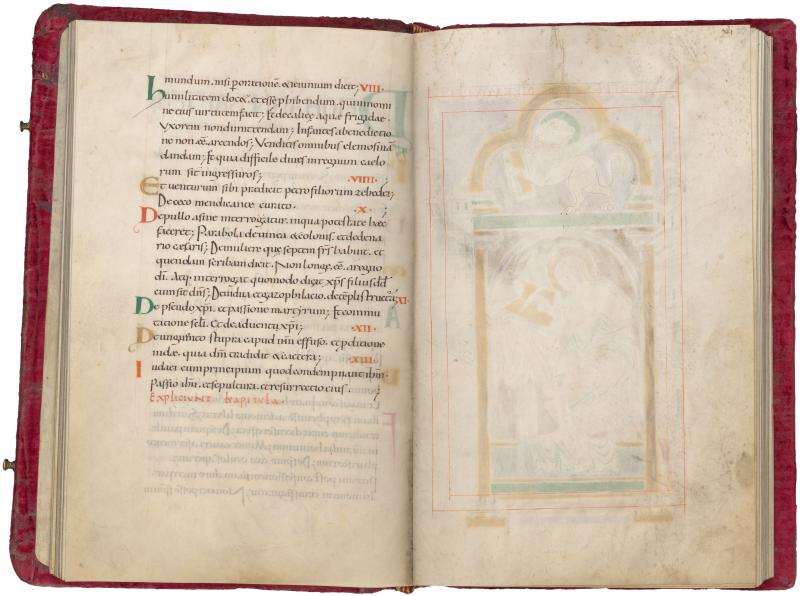 mundum, nisi p orationē & ieiunium dicit; VIII·
humilitatem docet, et esse phibendum, qui in nomi
ne eius virtutem facit; Et de calice aquę frigidae·
Vxorem non dimittendam; Infantes a benedictio
ne non eē arcendos; Venditis omnibus elemosinā
dandam; Et quia difficile dives in regnum caelo
rum sit ingressurus; ·VIIII·
Et venturum sibi praedicit petro filiorum zebedei;
De ceco mendicante curato· ·X·
De pullo asinę interrogatur, in qua potestate haec
faceret; Parabola de vinea & colonis, et de dena
rio caesaris; De muliere quę septem frs habuit, et
quendam scribam dicit, Non longe eē a regno
di. Atq· interrogat quomodo dicit xps filius dd
cum sit dns; De vidua et gazophilacio, de templi structura; XI·
De pseudo xpi, et passione martyrum; Et commu
tatione scli. Et de adventu xpi; ·XII·
De unguento supra capud ihu effuso, et pditione
iudae, quia dm tradidit & caetera; ·XIII·
Iudaei cum principium quod condempnant ihm·
passio ihu, et sepultura, et resurrectio eius·
EXPLICIVNT KAPITVLA·